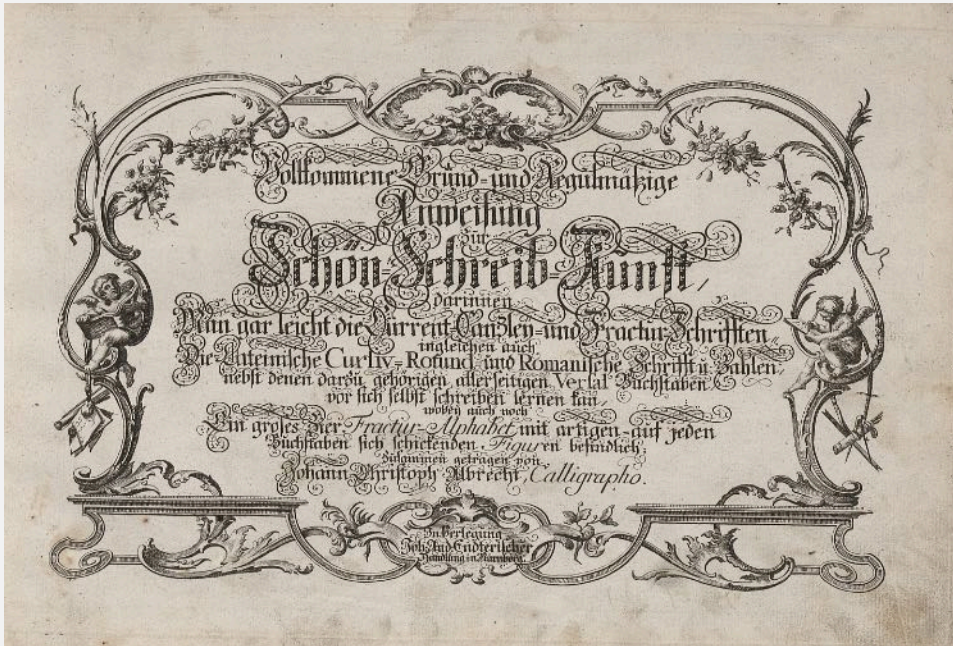 Vollkommene Grund- und Regulmäßige
Anweißung
zur
Schön-Schreib-Kunst,
darinnen
Man gar leicht die Current-Canzley- und Fractur-Schrifften,
ingleichen auch
Die Lateinische Cursiv- Rotund- und Romanische Schrifft u. Zahlen,
nebst denen darzu gehörigen allerseitigen Versal Buchstaben
vor sich selbst schreiben lernen kan,
wobey auch noch
Ein großes Zier Fractur-Alphabet mit artigen-auf jeden
Buchstaben sich schickenden Figuren befindlich;
zusammen getragen von
Johann Christoph Albrecht, Calligrapho.
In Verlegung
Joh. And. Endterischer
Handlung in Nürnberg.